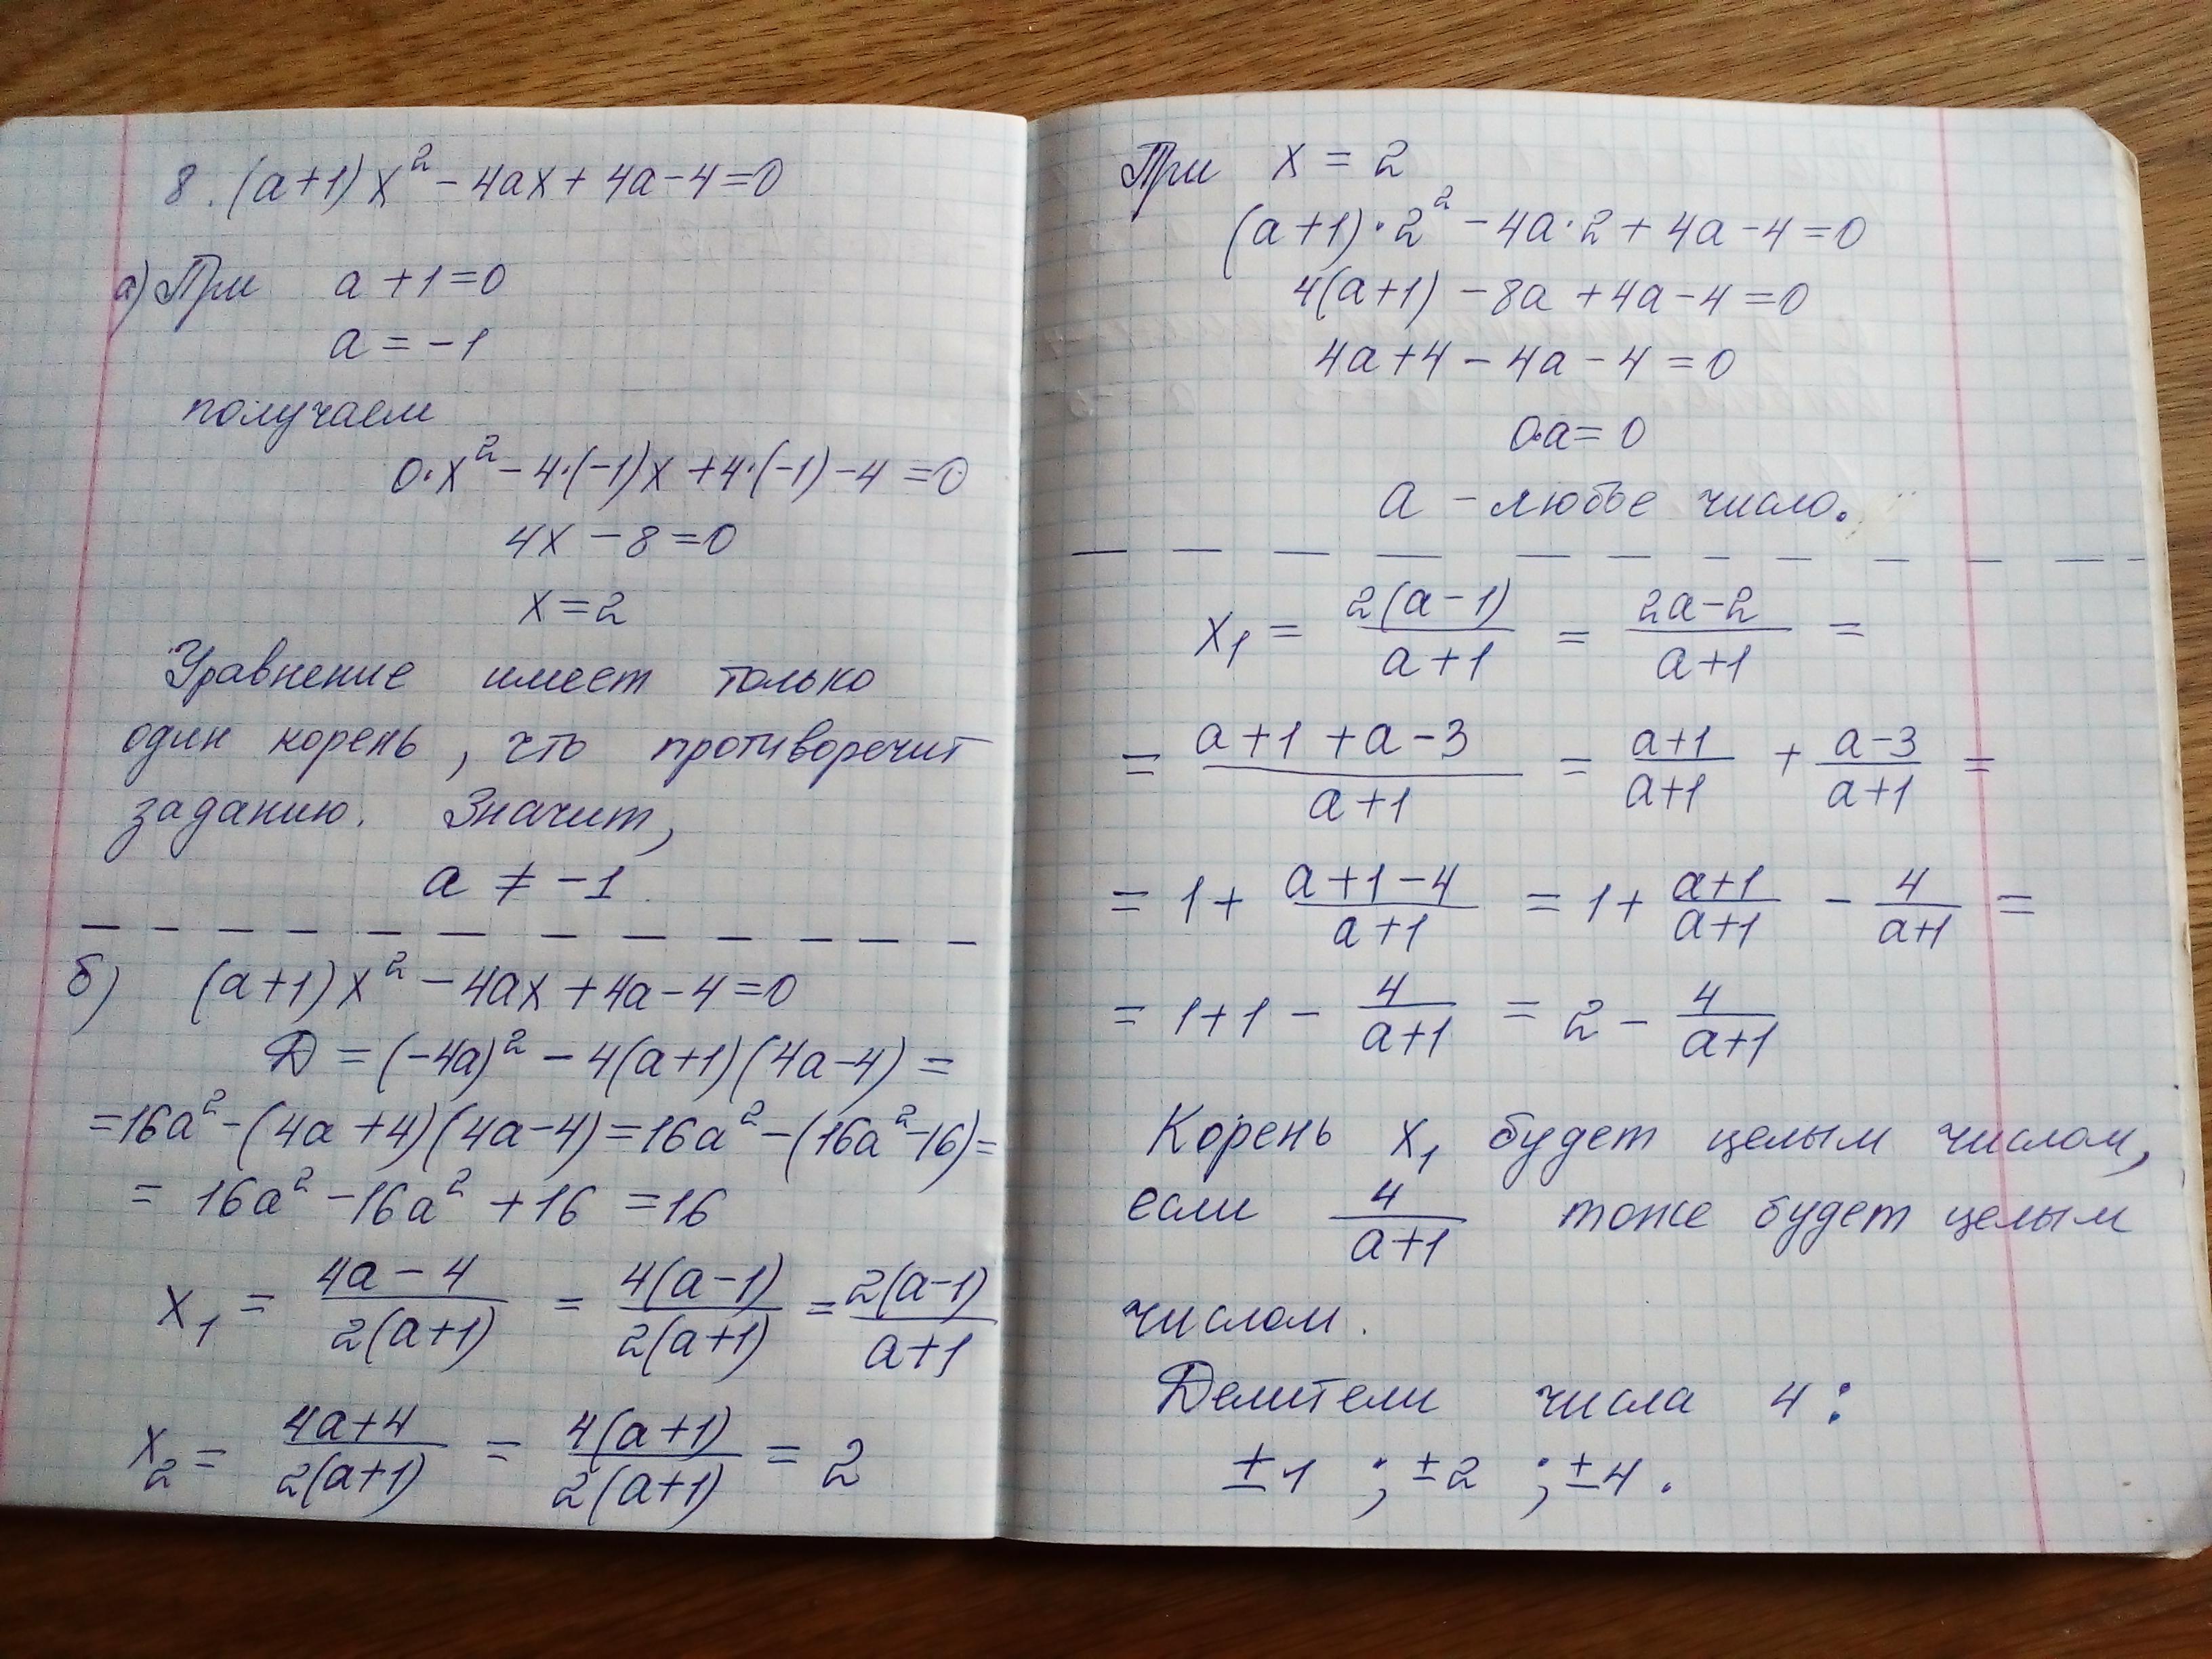 8. (a+1)x² - 4ax + 4a - 4 = 0
а) При a + 1 = 0
a = -1
получаем
0·x² - 4·(-1)x + 4·(-1) - 4 = 0
4x - 8 = 0
x = 2
Уравнение имеет только
один корень, что противоречит
заданию. Значит,
a ≠ -1
б) (a+1)x² - 4ax + 4a - 4 = 0
D = (-4a)² - 4(a+1)(4a-4) =
= 16a² - (4a+4)(4a-4) = 16a² - (16a²-16) =
= 16a² - 16a² + 16 = 16
x₁ = (4a-4)/(2(a+1)) = 4(a-1)/(2(a+1)) = 2(a-1)/(a+1)
x₂ = (4a+4)/(2(a+1)) = 4(a+1)/(2(a+1)) = 2
При x = 2
(a+1)·2² - 4a·2 + 4a - 4 = 0
4(a+1) - 8a + 4a - 4 = 0
4a + 4 - 4a - 4 = 0
0·a = 0
a - любое число.
x₁ = 2(a-1)/(a+1) = (2a-2)/(a+1) =
= (a+1+a-3)/(a+1) = (a+1)/(a+1) + (a-3)/(a+1) =
= 1 + (a+1-4)/(a+1) = 1 + (a+1)/(a+1) - 4/(a+1) =
= 1 + 1 - 4/(a+1) = 2 - 4/(a+1)
Корень x₁ будет целым числом,
если 4/(a+1) тоже будет целым
числом.
Делители числа 4:
±1 ; ±2 ; ±4.